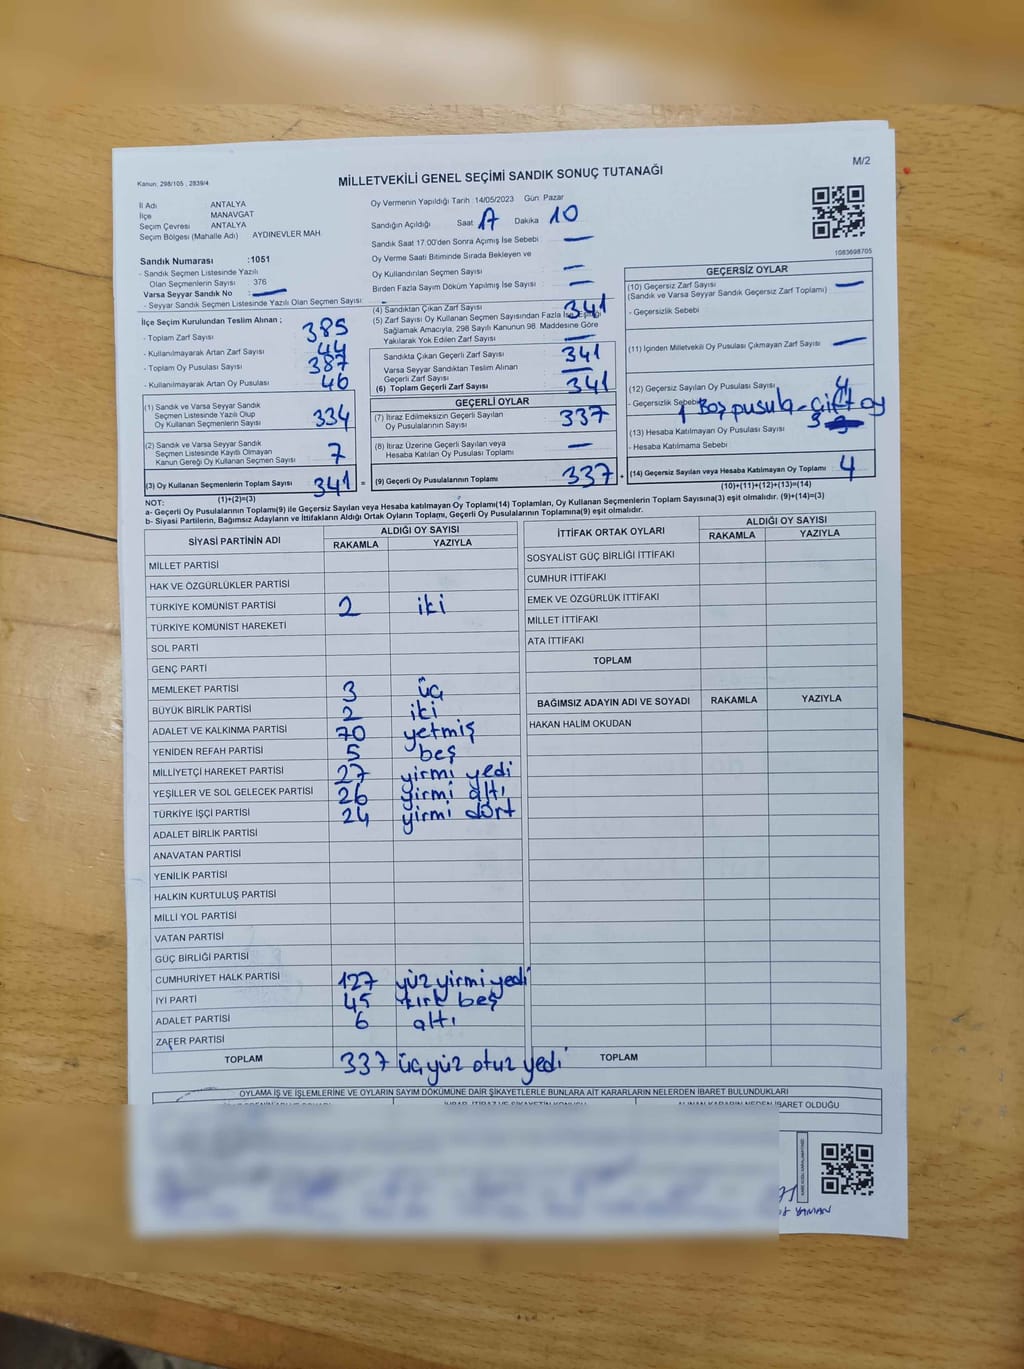 Kanun: 298/105 ; 2839/4
M/2
MİLLETVEKİLİ GENEL SEÇİMİ SANDIK SONUÇ TUTANAĞI
İl Adı ANTALYA
İlçe MANAVGAT
Seçim Çevresi ANTALYA
Seçim Bölgesi (Mahalle Adı) AYDINEVLER MAH.
Sandık Numarası :1051
- Sandık Seçmen Listesinde Yazılı
Olan Seçmenlerin Sayısı 376
Varsa Seyyar Sandık No : —
- Seyyar Sandık Seçmen Listesinde Yazılı Olan Seçmen Sayısı: -
Oy Vermenin Yapıldığı Tarih : 14/05/2023 Gün: Pazar
Sandığın Açıldığı Saat 17 Dakika 10
Sandık Saat 17.00'den Sonra Açılmış İse Sebebi —
Oy Verme Saati Bitiminde Sırada Bekleyen ve
Oy Kullandırılan Seçmen Sayısı —
Birden Fazla Sayım Döküm Yapılmış İse Sayısı —
1083698705
İlçe Seçim Kurulundan Teslim Alınan ;
- Toplam Zarf Sayısı 385
- Kullanılmayarak Artan Zarf Sayısı 44
- Toplam Oy Pusulası Sayısı 387
- Kullanılmayarak Artan Oy Pusulası 46
(1) Sandık ve Varsa Seyyar Sandık
Seçmen Listesinde Yazılı Olup
Oy Kullanan Seçmenlerin Sayısı 334
(2) Sandık ve Varsa Seyyar Sandık
Seçmen Listesinde Kayıtlı Olmayan
Kanun Gereği Oy Kullanan Seçmen Sayısı 7
(3) Oy Kullanan Seçmenlerin Toplam Sayısı 341 =
(1)+(2)=(3)
(4) Sandıktan Çıkan Zarf Sayısı 341
(5) Zarf Sayısı Oy Kullanan Seçmen Sayısından Fazla İse, Eşitliği
Sağlamak Amacıyla, 298 Sayılı Kanunun 98. Maddesine Göre
Yakılarak Yok Edilen Zarf Sayısı —
Sandıkta Çıkan Geçerli Zarf Sayısı 341
Varsa Seyyar Sandıktan Teslim Alınan
Geçerli Zarf Sayısı —
(6) Toplam Geçerli Zarf Sayısı 341
GEÇERLİ OYLAR
(7) İtiraz Edilmeksizin Geçerli Sayılan
Oy Pusulalarının Sayısı 337
(8) İtiraz Üzerine Geçerli Sayılan veya
Hesaba Katılan Oy Pusulası Toplamı —
(9) Geçerli Oy Pusulalarının Toplamı 337 +
GEÇERSİZ OYLAR
(10) Geçersiz Zarf Sayısı —
(Sandık ve Varsa Seyyar Sandık Geçersiz Zarf Toplamı)
- Geçersizlik Sebebi
(11) İçinden Milletvekili Oy Pusulası Çıkmayan Zarf Sayısı —
(12) Geçersiz Sayılan Oy Pusulası Sayısı 4
- Geçersizlik Sebebi 1 Boş pusula - çift oy
(13) Hesaba Katılmayan Oy Pusulası Sayısı 3
- Hesaba Katılmama Sebebi
(14) Geçersiz Sayılan veya Hesaba Katılmayan Oy Toplamı 4
(10)+(11)+(12)+(13)=(14)
NOT:
a- Geçerli Oy Pusulalarının Toplamı(9) ile Geçersiz Sayılan veya Hesaba katılmayan Oy Toplamı(14) Toplamları, Oy Kullanan Seçmenlerin Toplam Sayısına(3) eşit olmalıdır. (9)+(14)=(3)
b- Siyasi Partilerin, Bağımsız Adayların ve İttifakların Aldığı Ortak Oyların Toplamı, Geçerli Oy Pusulalarının Toplamına(9) eşit olmalıdır.
SİYASİ PARTİNİN ADI ALDIĞI OY SAYISI
RAKAMLA YAZIYLA
MİLLET PARTİSİ
HAK VE ÖZGÜRLÜKLER PARTİSİ
TÜRKİYE KOMÜNİST PARTİSİ 2 iki
TÜRKİYE KOMÜNİST HAREKETİ
SOL PARTİ
GENÇ PARTİ
MEMLEKET PARTİSİ 3 üç
BÜYÜK BİRLİK PARTİSİ 2 iki
ADALET VE KALKINMA PARTİSİ 70 yetmiş
YENİDEN REFAH PARTİSİ 5 beş
MİLLİYETÇİ HAREKET PARTİSİ 27 yirmi yedi
YEŞİLLER VE SOL GELECEK PARTİSİ 26 yirmi altı
TÜRKİYE İŞÇİ PARTİSİ 24 yirmi dört
ADALET BİRLİK PARTİSİ
ANAVATAN PARTİSİ
YENİLİK PARTİSİ
HALKIN KURTULUŞ PARTİSİ
MİLLİ YOL PARTİSİ
VATAN PARTİSİ
GÜÇ BİRLİĞİ PARTİSİ
CUMHURİYET HALK PARTİSİ 127 yüz yirmi yedi
İYİ PARTİ 45 kırk beş
ADALET PARTİSİ 6 altı
ZAFER PARTİSİ
TOPLAM 337 üç yüz otuz yedi
İTTİFAK ORTAK OYLARI ALDIĞI OY SAYISI
RAKAMLA YAZIYLA
SOSYALİST GÜÇ BİRLİĞİ İTTİFAKI
CUMHUR İTTİFAKI
EMEK VE ÖZGÜRLÜK İTTİFAKI
MİLLET İTTİFAKI
ATA İTTİFAKI
TOPLAM
BAĞIMSIZ ADAYIN ADI VE SOYADI RAKAMLA YAZIYLA
HAKAN HALİM OKUDAN
TOPLAM
OYLAMA İŞ VE İŞLEMLERİNE VE OYLARIN SAYIM DÖKÜMÜNE DAİR ŞİKAYETLERLE BUNLARA AİT KARARLARIN NELERDEN İBARET BULUNDUKLARI
ALINAN KARARIN NEDEN İBARET OLDUĞU
YAMAN